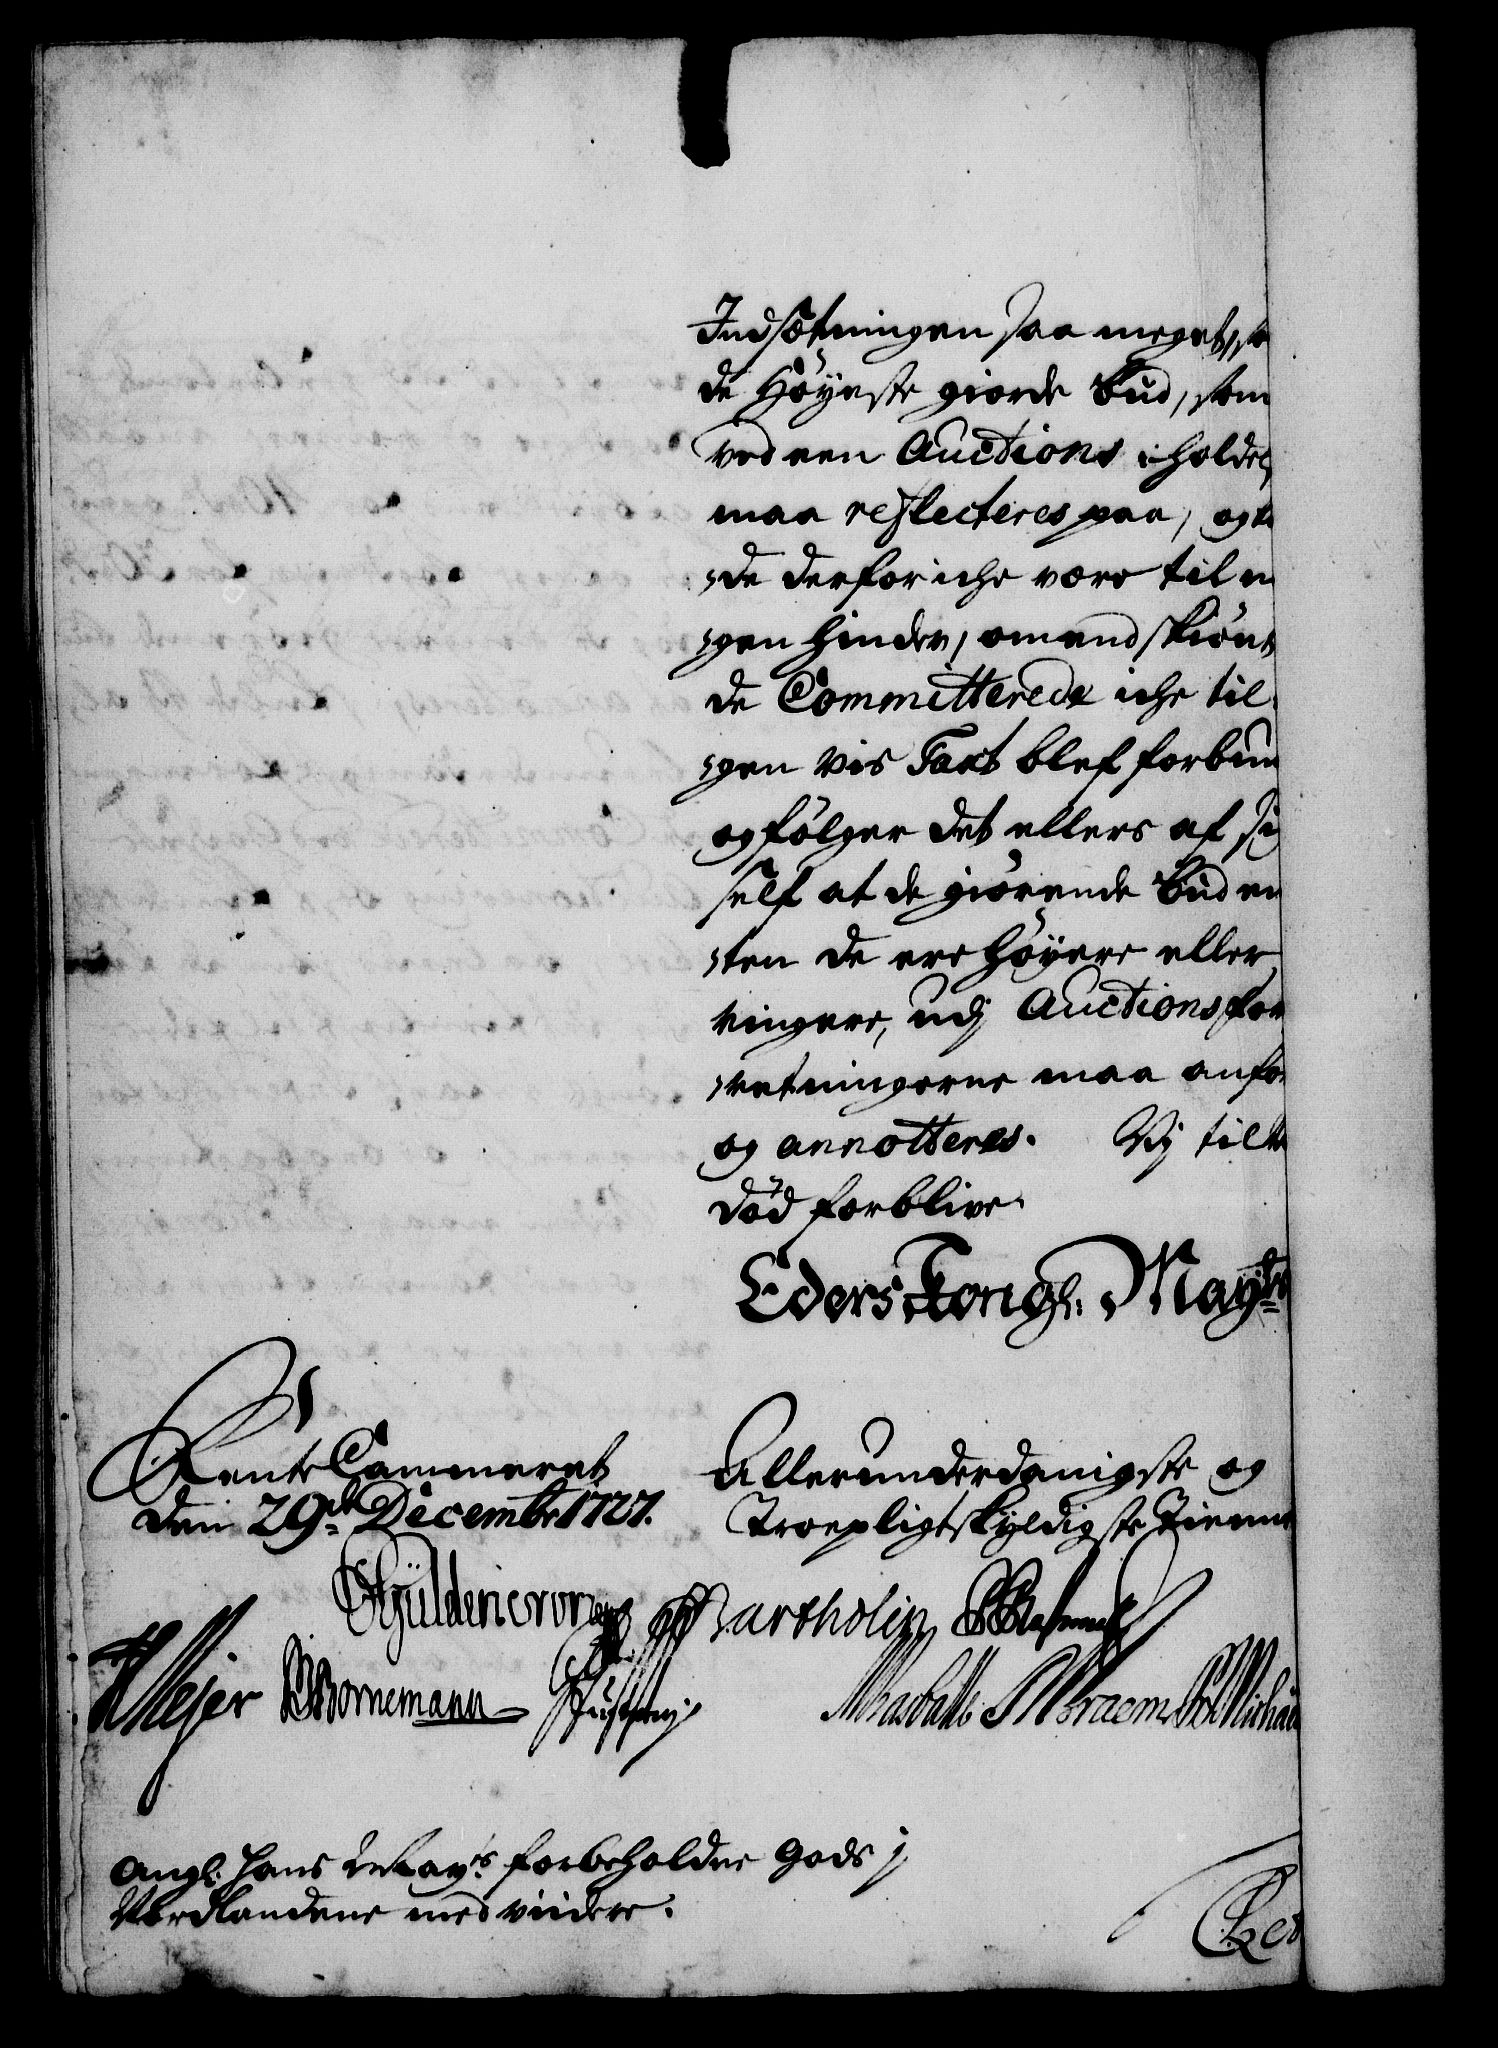 Indsætningen saa meget, so
de Höyeste giorde Bud, som
ved een Auctions iholdel
maa reflecteres paa, og
de derfor iche være til n
gen hinder, omendskiönt
de Committerede iche til
gen vis Taxt blef forbun
og fölger det ellers af sig
self at de giörende Bud en
ten de ere höyere eller
ringere, udj Auctions for
retningerne maa anfö
og annotteres. Vj til
död forblive
Eders Kongl: Mayts
RenteCammeret
den 29de Decembr 1727.
Allerunderdanigste og
Troepligtskyldigste Tienne
Güldencrone
Bartholin
Mejer
Bornemann
Braem
angl. Hans May:ts forbeholdne Gods j
Nordlandene med viidere.